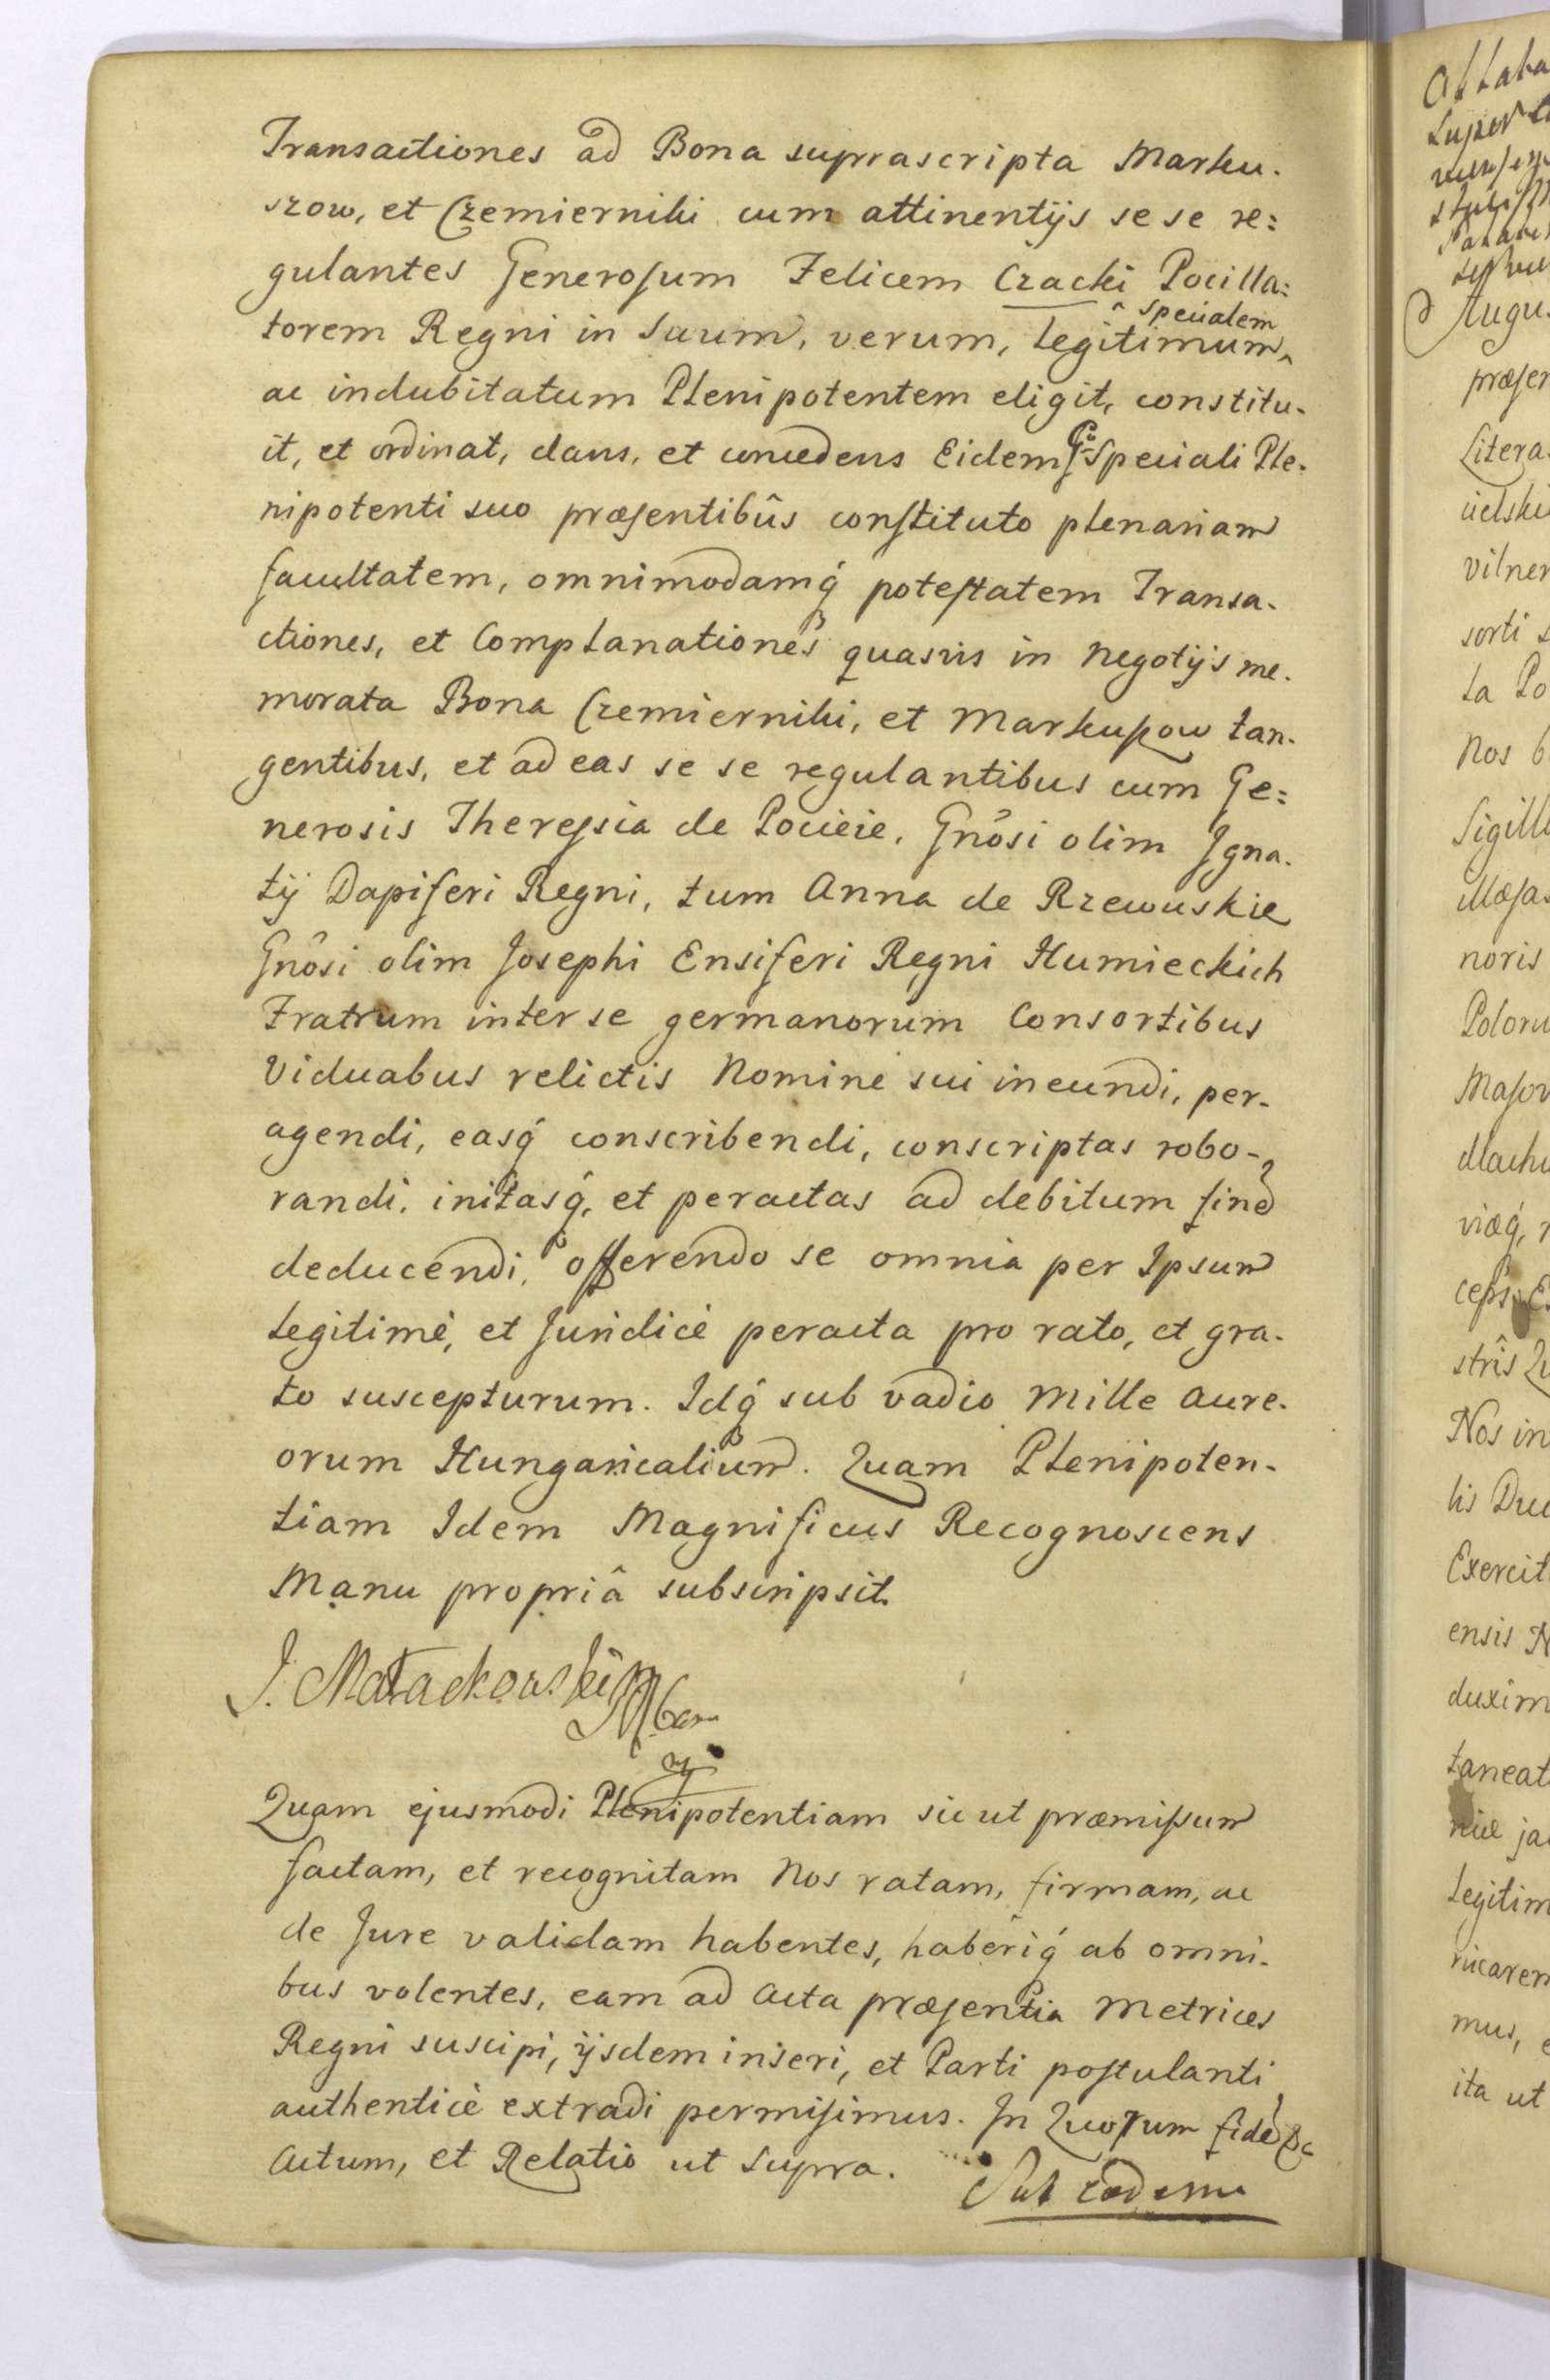 Transactiones ad Bona suprascripta Marku-
szow, et Czemierniki cum attinentijs se se re=
gulantes Generosum Felicem Czacki Pocilla=
torem Regni in Suum, verum, legitimum, ^ specialem
ac indubitatum Plenipotentem eligit, constitu-
it, et ordinat, dans, et concedens Eidem Gso Speciali Ple-
nipotenti suo præsentibûs constituto plenariam
facultatem, omnimodamq́ potestatem Transa-
ctiones, et Complanationes quasvis in negotijs me-
morata Bona Czemierniki, et Markuszow tan-
gentibus, et ad eas se se regulantibus cum Ge=
nerosis Theressia de Pocieie, Gnôsi olim Igna-
tij Dapiferi Regni, tum Anna de Rzewuskie
Gnôsi olim Josephi Ensiferi Regni Humieckich
Fratrum inter se germanorum Consortibus
Viduabus relictis Nomine sui ineundi, per-
agendi, easq́ conscribendi, conscriptas robo-
randi, initasq́, et peractas ad debitum finẽ
deducendi, offerendo se omnia per Ipsum
legitimè, et Juridicè peracta pro rato, et gra-
to suscepturum. Idq́ sub vadio Mille Aure-
orum Hungaricalium. Quam Plenipoten-
tiam Idem Magnificus Recognoscens
Manu propriâ subscripsit.
J. Małachowski
Quam ejusmodi Plenipotentiam sic ut præmissum
factam, et recognitam Nos ratam, firmam, ac
de Jure validam habentes, haberiq́ ab omni-
bus volentes, eam ad Acta præsentia Metrices
Regni suscipi, ijsdem inseri, et Parti postulanti
authenticè extradi permisimus. In Quorum fidẽ &c
Actum, et Relatio ut Supra.
Sub eodem
Augus
præsen
Litera
cielski
vilnen
sorti s
ta Po
Nos b
Sigill
Mæsa
noris
Poloru
Masov
dlachi
viæq́, 
ceps E
strîs Qu
Nos in
lis Duc
Exercit
ensis N
duxim
taneat
niæ ja
legitim
ricaren
mus, e
ita ut